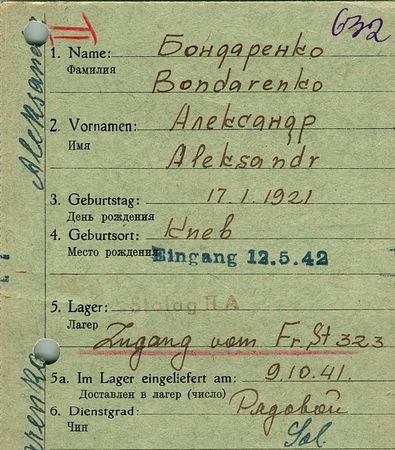 632
1. Name: Бондаренко
Фамилия
Bondarenko
2. Vornamen: Александр
Имя
Aleksandr
3. Geburtstag: 17.1.1921
День рождения
4. Geburtsort: Киев
Место рождения Eingang 12.5.42
5. Lager: Stalag II A
Лагер
Zugang vom Fr. St 323
5a. Im Lager eingeliefert am: 9.10.41.
Доставлен в лагер (число)
6. Dienstgrad: Рядовой
Чин Sol.
Aleksand
arenko